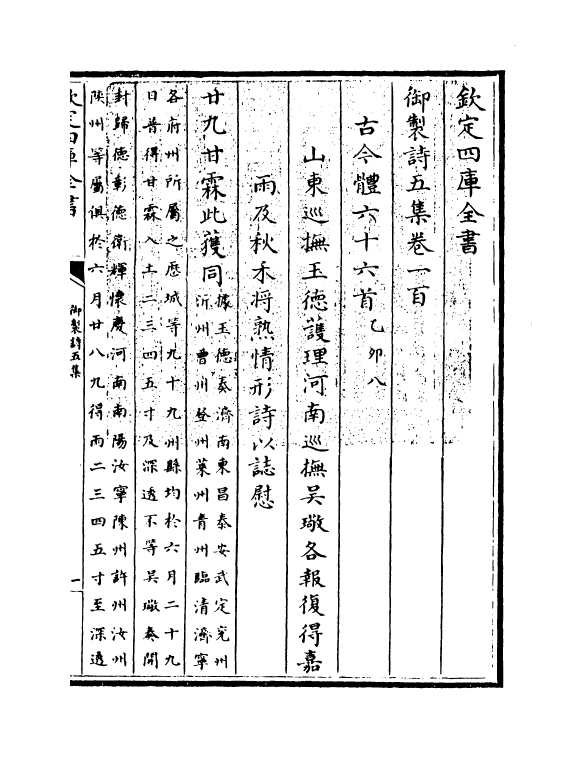 欽定四庫全書
御製詩五集卷一百
古今體六十六首乙卯八
山東巡撫玉德護理河南巡撫吳璥各報復得嘉
雨及秋禾將熟情形詩以誌慰
廿九甘霖此獲同據玉德奏濟南東昌泰安武定兖州
沂州曹州登州萊州青州臨清濟寧
各府州所屬之歴城等九十九州縣均於六月二十九
日普得甘霖入土二三四五寸及深透不等吳璥奏開
封歸德彰德衛輝懷慶河南南陽汝寧陳州許州汝州
陜州等屬俱於六月廿八九得雨二三四五寸至深透
欽定四庫全書
御製詩五集
一